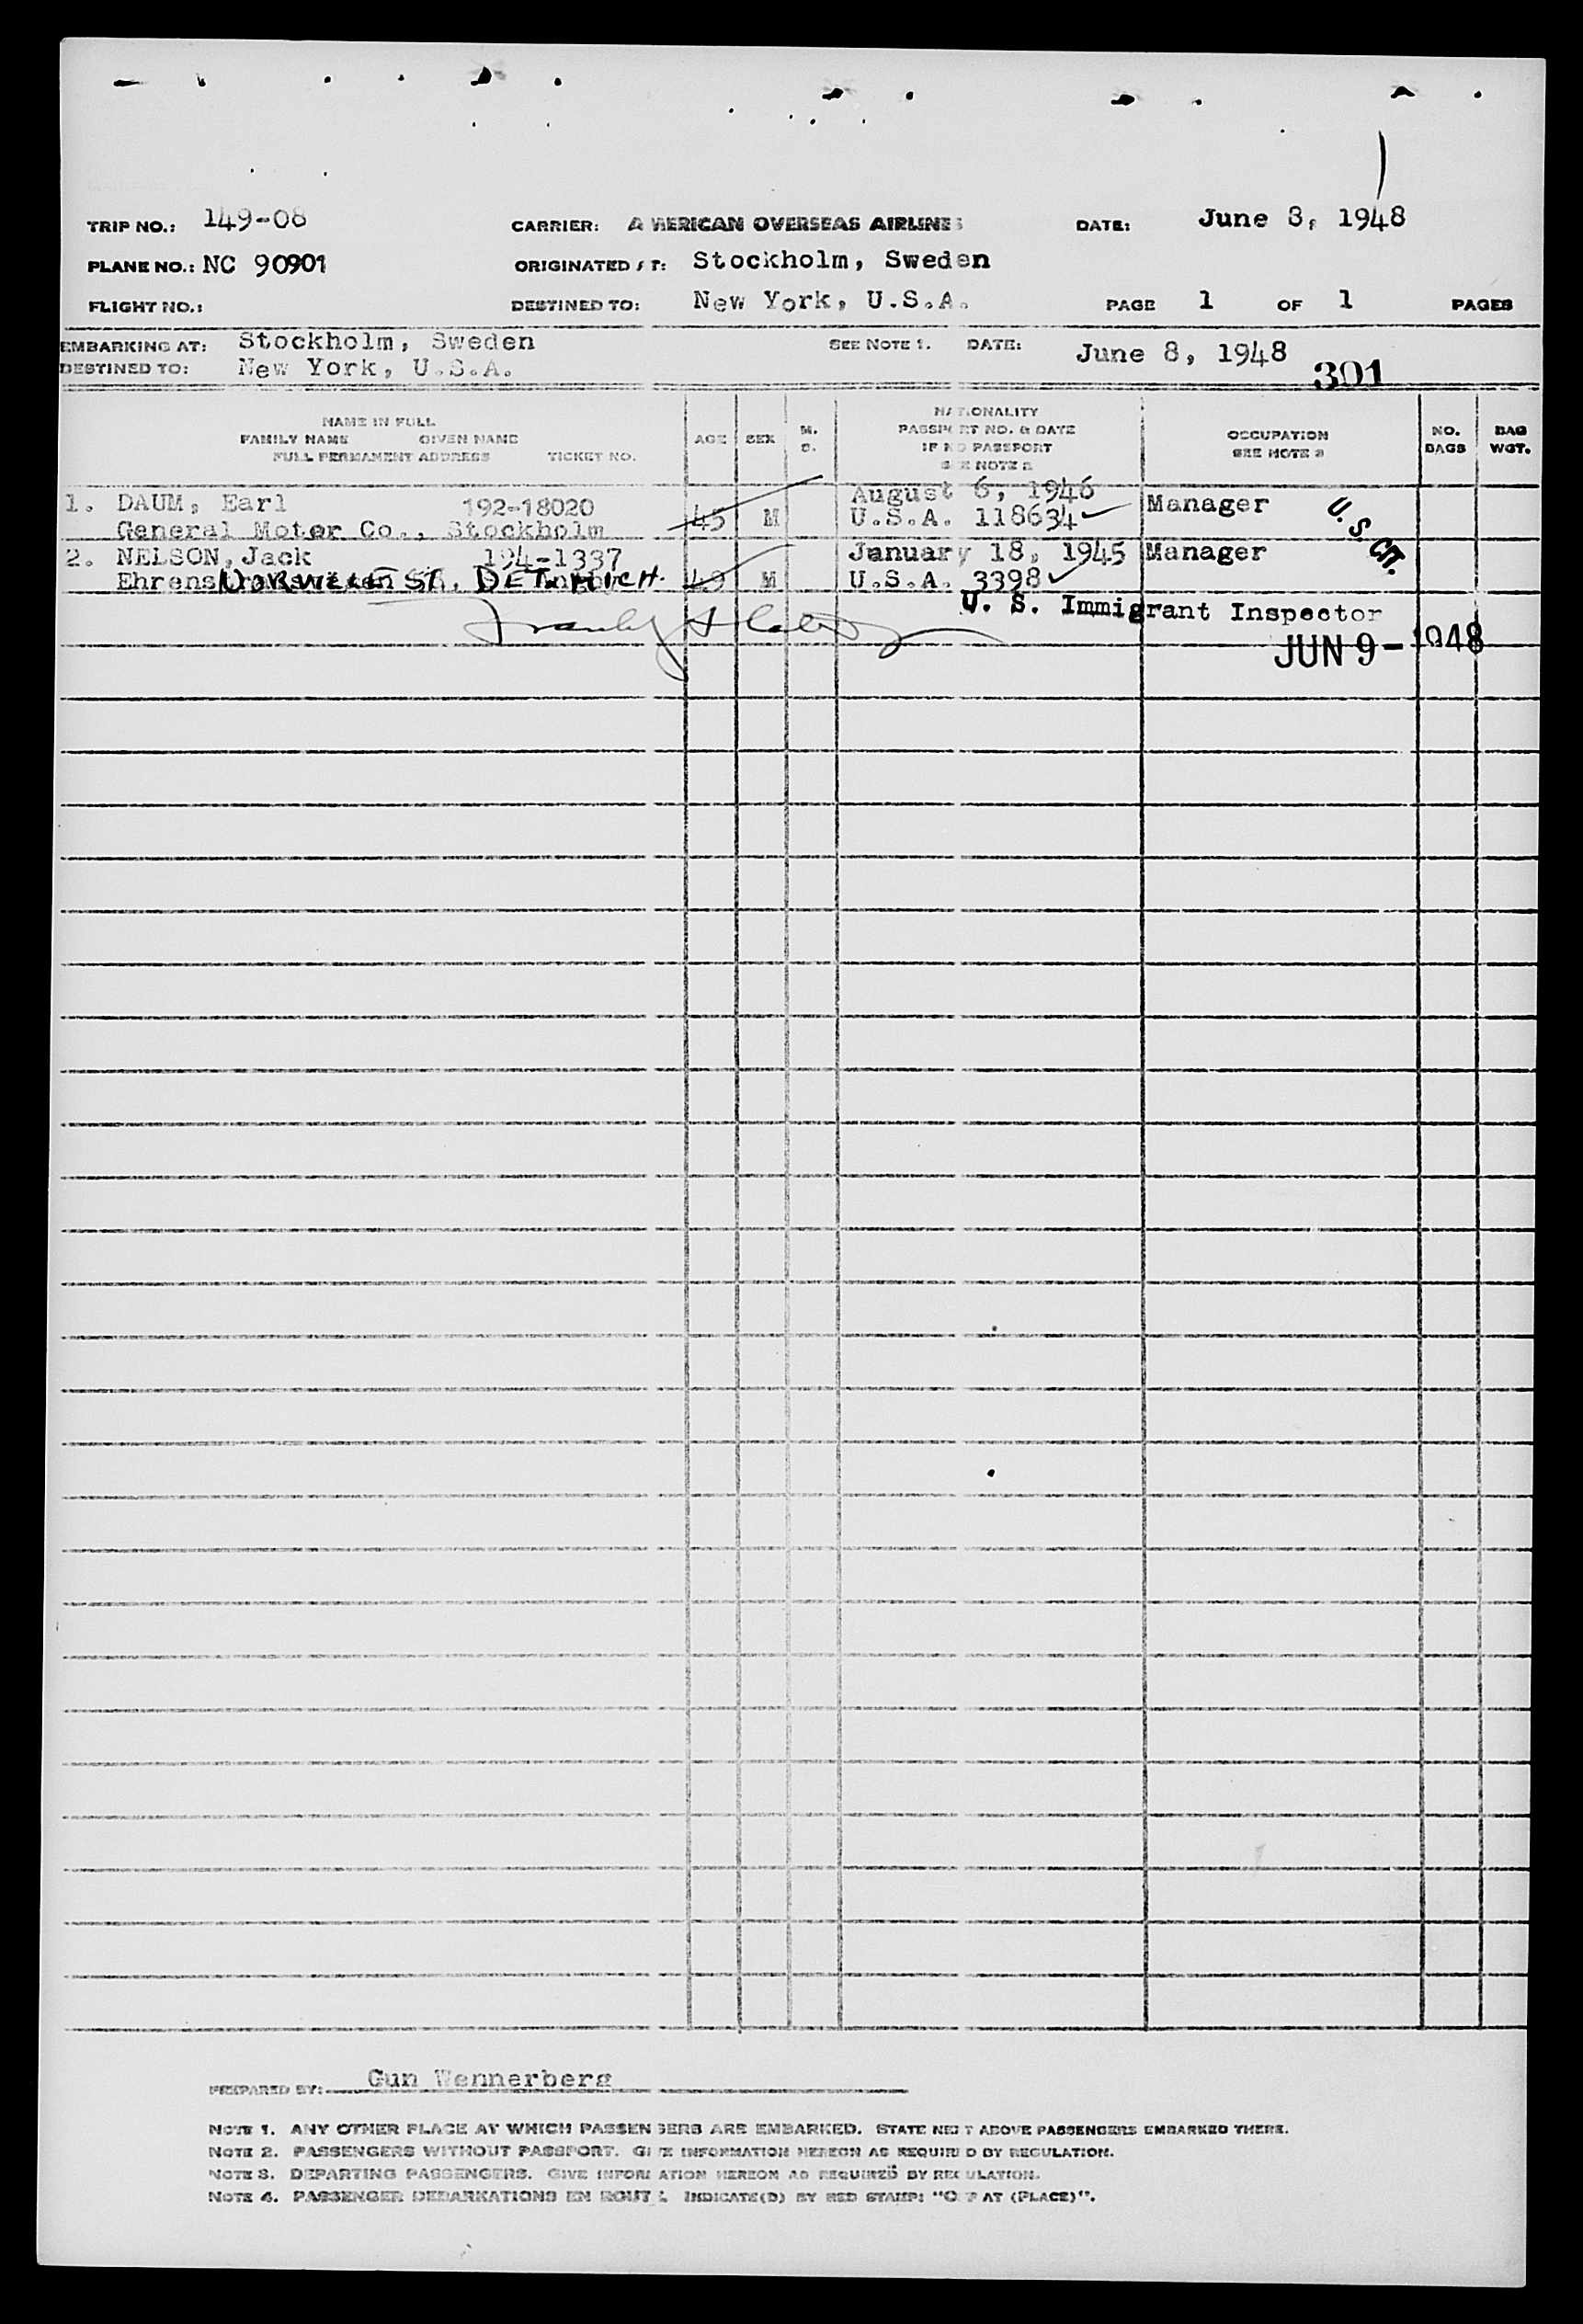 TRIP NO.: 149-08 CARRIER: AMERICAN OVERSEAS AIRLINES DATE: June 8, 1948
PLANE NO.: NC 90901 ORIGINATED AT: Stockholm, Sweden
FLIGHT NO.: DESTINED TO: New York, U.S.A. PAGE 1 OF 1 PAGES
EMBARKING AT: Stockholm, Sweden SEE NOTE 1. DATE: June 8, 1948
DESTINED TO: New York, U.S.A.
301
NAME IN FULL
FAMILY NAME GIVEN NAME
FULL PERMANENT ADDRESS TICKET NO.
AGE
SEX
M.
S.
NATIONALITY
PASSPORT NO. & DATE
IF NO PASSPORT
SEE NOTE 2
OCCUPATION
SEE NOTE 3
NO.
BAGS
BAG
WGT.
1. DAUM, Earl 192-18020 August 6, 1946 Manager
General Motor Co., Stockholm 45 M U.S.A. 118634
U.S. CIT.
2. NELSON, Jack 194-1337 January 18, 1945 Manager
ST. DET. MICH. 49 M U.S.A. 3398
U. S. Immigrant Inspector
JUN 9 - 1948
PREPARED BY: Gun Wennerberg
NOTE 1. ANY OTHER PLACE AT WHICH PASSENGERS ARE EMBARKED. STATE NEXT ABOVE PASSENGERS EMBARKED THERE.
NOTE 2. PASSENGERS WITHOUT PASSPORT. GIVE INFORMATION HEREON AS REQUIRED BY REGULATION.
NOTE 3. DEPARTING PASSENGERS. GIVE INFORMATION HEREON AS REQUIRED BY REGULATION.
NOTE 4. PASSENGER DEBARKATIONS EN ROUTE INDICATE(D) BY RED STAMP: "OFF AT (PLACE)".